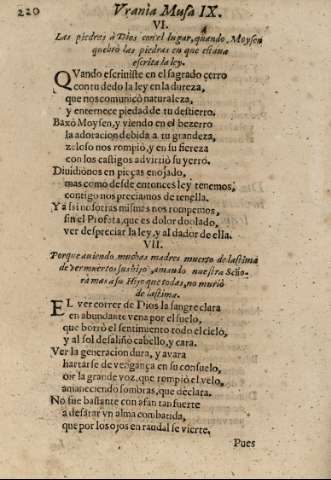 220 Vrania Musa IX.
VI.
Las piedras à Dios con el lugar, quando Moysen
quebrò las piedras en que estaua
escrita la ley.
QVando escriuiste en el sagrado cerro
con tu dedo la ley en la dureza,
que nos comunicò naturaleza,
y enternece piedad de tu destierro.
Baxò Moysen, y viendo en el bezerro
la adoracion debida a tu grandeza,
zeloso nos rompiò, y en su fiereza
con los castigos aduirtiò su yerro.
Diuidiònos en pieças enojado,
mas como desde entonces ley tenemos,
contigo nos preciamos de tenella.
Y assi nosotras mismas nos rompemos,
sin el Profeta, que es dolor doblado,
ver despreciar la ley, y al dador de ella.
VII.
Porque auiendo muchas madres muerto de lastima
de ver muertos sus hijos, amando nuestra Seño-
ra mas a su Hijo que todas, no muriò
de lastima.
EL ver correr de Dios la sangre clara
en abundante vena por el suelo,
que borrò el sentimiento todo el cielo,
y al sol desaliñò cabello, y cara.
Ver la generacion dura, y auara
hartarse de vengança en su consuelo,
oir la grande voz, que rompiò el velo,
amaneciendo sombras, que declara.
No fue bastante con afan tan fuerte
a desatar vn alma combatida,
que por los ojos en raudal se vierte,
Pues